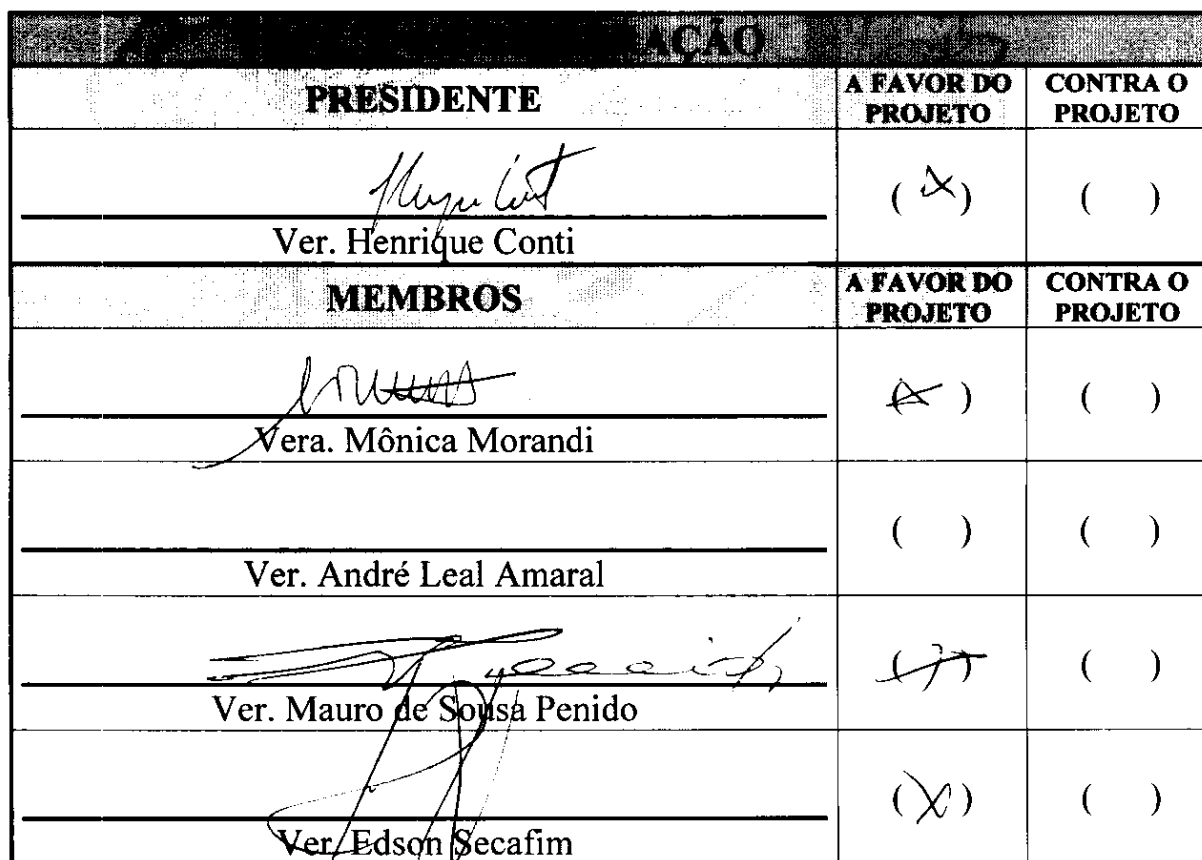 AÇÃO
PRESIDENTE
A FAVOR DO PROJETO
CONTRA O PROJETO
( X )
(    )
Ver. Henrique Conti
MEMBROS
A FAVOR DO PROJETO
CONTRA O PROJETO
( X )
(    )
Vera. Mônica Morandi
(    )
(    )
Ver. André Leal Amaral
(    )
Ver. Mauro de Sousa Penido
( X )
(    )
Ver. Edson Secafim